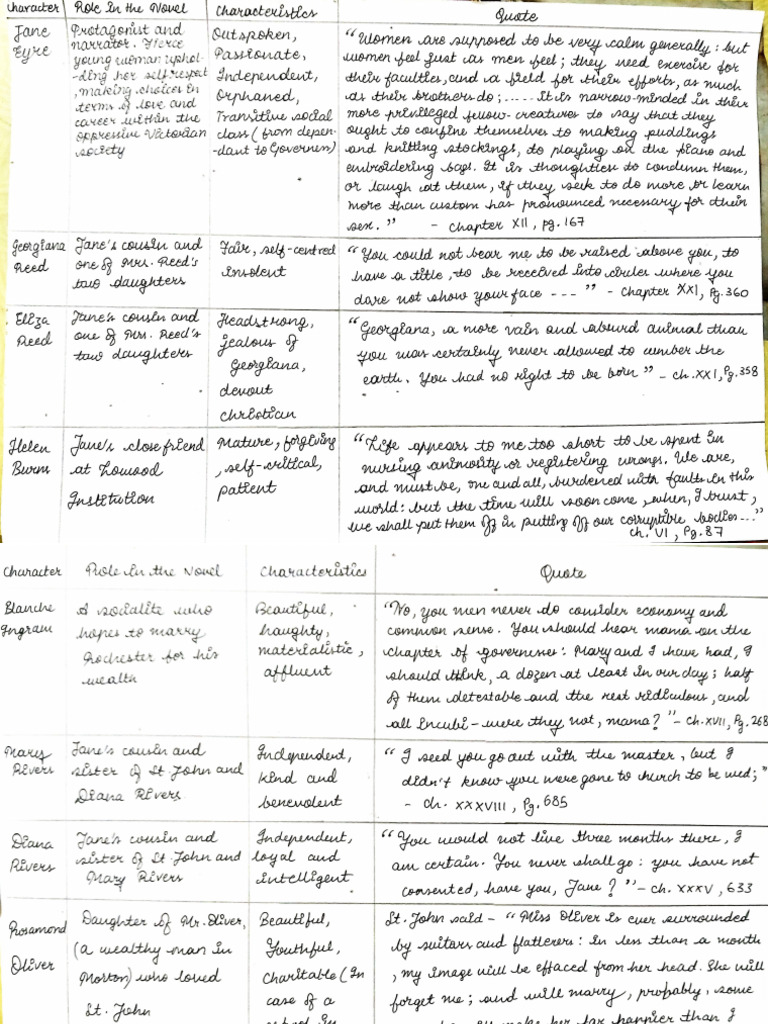 Character Role in the Novel Characteristics Quote
Jane Eyre
Protagonist and
narrator. Fierce
young woman uphol-
-ding her self respect
, making choices in
terms of love and
career within the
oppressive Victorian
society
Outspoken,
Passionate,
Independent,
Orphaned,
Transitive social
class (from depen-
-dant to Governess)
"Women are supposed to be very calm generally: but
women feel just as men feel; they need exercise for
their faculties, and a field for their efforts, as much
as their brothers do; ..... it is narrow-minded in their
more privileged fellow-creatures to say that they
ought to confine themselves to making puddings
and knitting stockings, to playing on the piano and
embroidering bags. It is thoughtless to condemn them,
or laugh at them, if they seek to do more or learn
more than custom has pronounced necessary for their
sex." - Chapter XII, pg. 167
Georgiana
Reed
Jane's cousin and
one of Mrs. Reed's
two daughters
Fair, self-centred
insolent
"You could not bear me to be raised above you, to
have a title, to be received into circles where you
dare not show your face --- " - Chapter XXI, Pg. 360
Eliza
Reed
Jane's cousin and
one of Mrs. Reed's
two daughters
Headstrong,
jealous of
Georgiana,
devout
christian
"Georgiana, a more vain and absurd animal than
you was certainly never allowed to cumber the
earth. You had no right to be born" - ch. XXI, Pg. 358
Helen
Burns
Jane's close friend
at Lowood
Institution
Mature, forgiving
, self-critical,
patient
"Life appears to me too short to be spent in
nursing animosity or registering wrongs. We are,
and must be, one and all, burdened with faults in this
world: but the time will soon come, when, I trust,
we shall put them off in putting off our corruptible bodies..."
Ch. VI, Pg. 87
Character Role in the Novel Characteristics Quote
Blanche
Ingram
A socialite who
hopes to marry
Rochester for his
wealth
Beautiful,
haughty,
materialistic,
affluent
"No, you men never do consider economy and
common sense. You should hear mama on the
chapter of governesses: Mary and I have had, I
should think, a dozen at least in our day; half
of them detestable and the rest ridiculous, and
all incubi - were they not, mama?" - Ch. XVII, Pg. 268
Mary
Rivers
Jane's cousin and
sister of St. John and
Diana Rivers
Independent,
kind and
benevolent
"I seed you go out with the master, but I
didn't know you were gone to church to be wed;"
- Ch. XXXVIII, Pg. 685
Diana
Rivers
Jane's cousin and
sister of St. John and
Mary Rivers
Independent,
loyal and
intelligent
"You would not live three months there, I
am certain. You never shall go: you have not
consented, have you, Jane?" - ch. XXXV, 633
Rosamond
Oliver
Daughter of Mr. Oliver,
(a wealthy man in
Morton) who loved
St. John
Beautiful,
Youthful,
Charitable (In
case of a
St. John said - "Miss Oliver is ever surrounded
by suitors and flatterers: in less than a month
, my image will be effaced from her head. She will
forget me; and will marry, probably, some